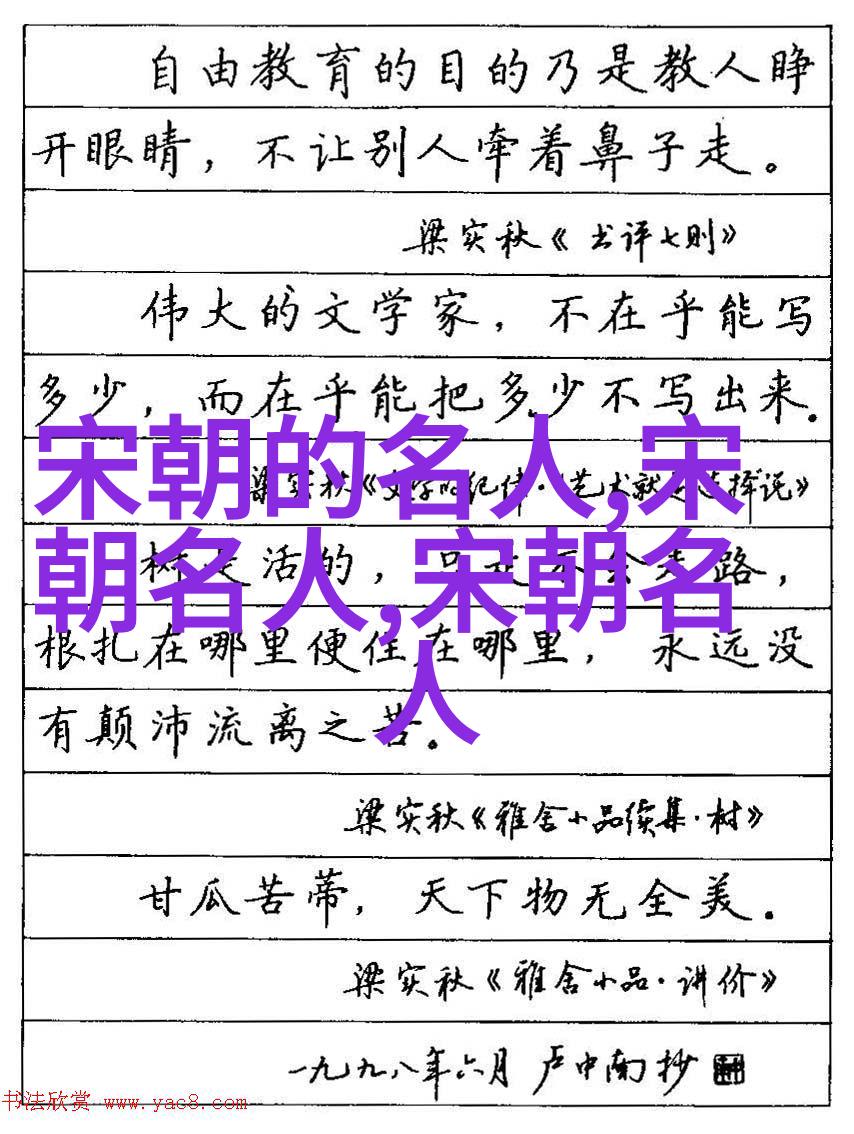 自由教育的目的乃是教人睁
开眼睛，不让别人牵着鼻子走。
梁实秋《书评七则》
伟大的文学家，不在乎能写
多少，而在乎能把多少不写出来.
宋朝的名人,宋
梁实秋《文学的纪律·艺术就是选择说》
朝名人,宋朝名
树是活的，只是不会走路，
根扎在哪里便住在哪里，永远没
人
有颠沛流离之苦。
梁实秋《雅舍小品续集·树》
甘瓜苦蒂，天下物无全美.
梁实秋《雅舍小品·讲价》
一九九八年六月 卢中南抄
书法欣赏 www.yac8.com